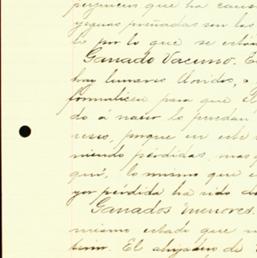 perjuicios que ha caus
yeguas preñadas son las
ti por lo que se está
Ganado Vacuno. E
hay lunares áridos, a
formalicen para que el
do á nacer lo puedan
reses, porque en este
niendo pérdidas, mas
quí, lo mismo que e
yor pérdida ha sido de
Ganados menores.
mismo estado que
El ahijadero de